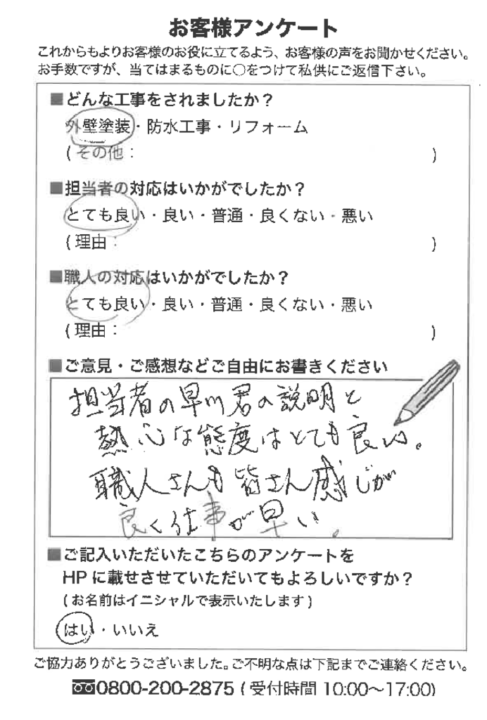 お客様アンケート
これからもよりお客様のお役に立てるよう、お客様の声をお聞かせください。
お手数ですが、当てはまるものに○をつけて私供にご返信下さい。
■どんな工事をされましたか？
外壁塗装・防水工事・リフォーム
(その他：　)
■担当者の対応はいかがでしたか？
とても良い・良い・普通・良くない・悪い
(理由：　)
■職人の対応はいかがでしたか？
とても良い・良い・普通・良くない・悪い
(理由：　)
■ご意見・ご感想などご自由にお書きください
担当者の早川君の説明と
熱心な態度はとても良い。
職人さんも皆さん感じが
良く仕事が早い。
■ご記入いただいたこちらのアンケートを
HPに載せさせていただいてもよろしいですか？
(お名前はイニシャルで表示いたします)
はい・いいえ
ご協力ありがとうございました。ご不明な点は下記までご連絡ください。
0800-200-2875 (受付時間 10:00〜17:00)